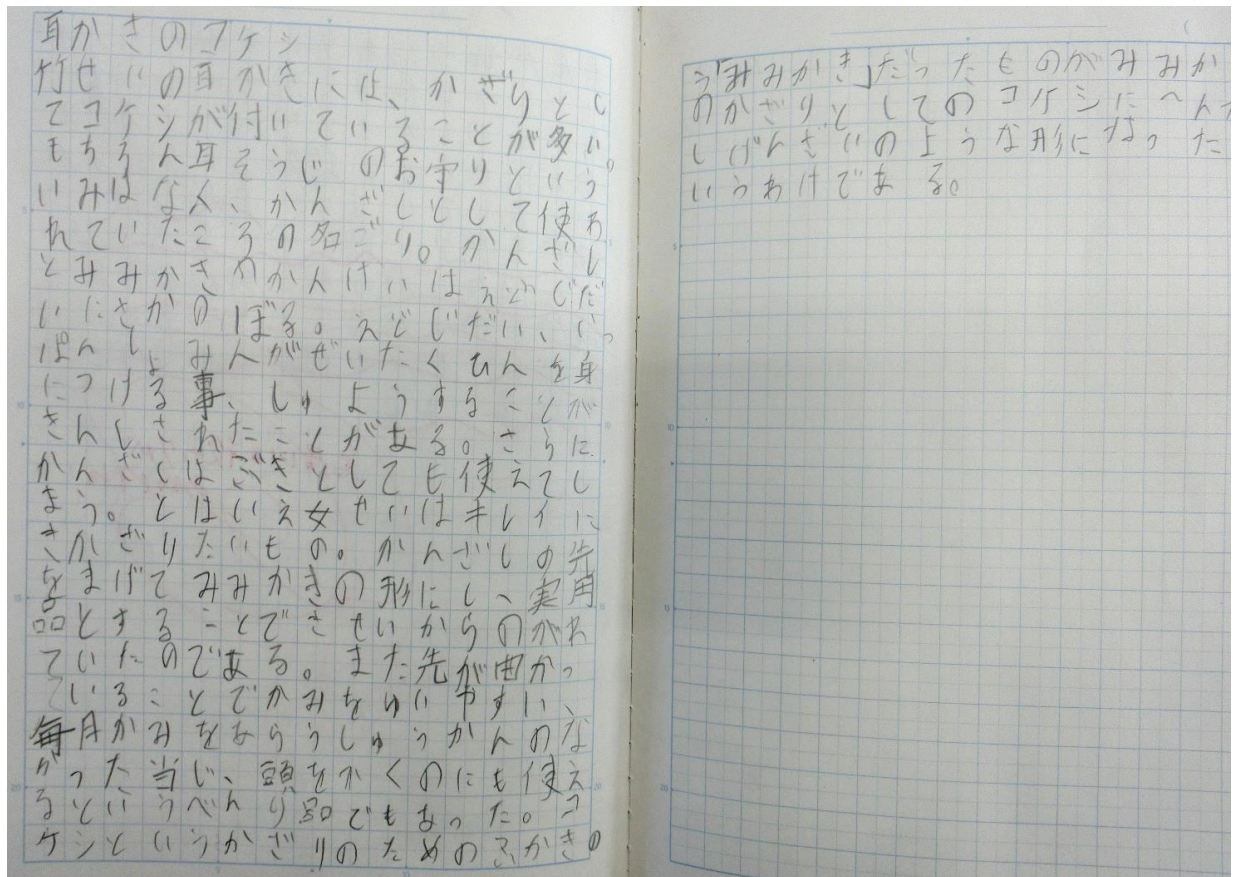 耳かきのコケシ
竹せいの耳かきには、かざりとし
てコケシが付いていることが多い。
もちろん耳そうじのお守りという
いみはなく、かんざしとして使わ
れていたころの名ごり。かんざし
とみみかきのかんけいはえどじだ
いにさかのぼる。えどじだい、いっ
ぱんしょみんがぜいたくひんを身
につける事、しゅようすることが
きんしされたことがある。さらに
かんざしはごきとしても使えてし
まう。とはいえ女せいはキレイに
きかざりたいもの。かんざしの先
をまげてみみかきの形にし、実用
品とすることできせいからのがれ
ていたのである。また先が曲がっ
ていることでかみをゆいやすい、
毎月かみをあらうしゅうかんのな
がった当じ、頭をかくのにも使え
るというべんり品でもあった。コ
ケシというかざりのための
う「みみかき」だったものがみみか
のかざりとしてのコケシにへん
しげんざいのような形になった
いうわけである。